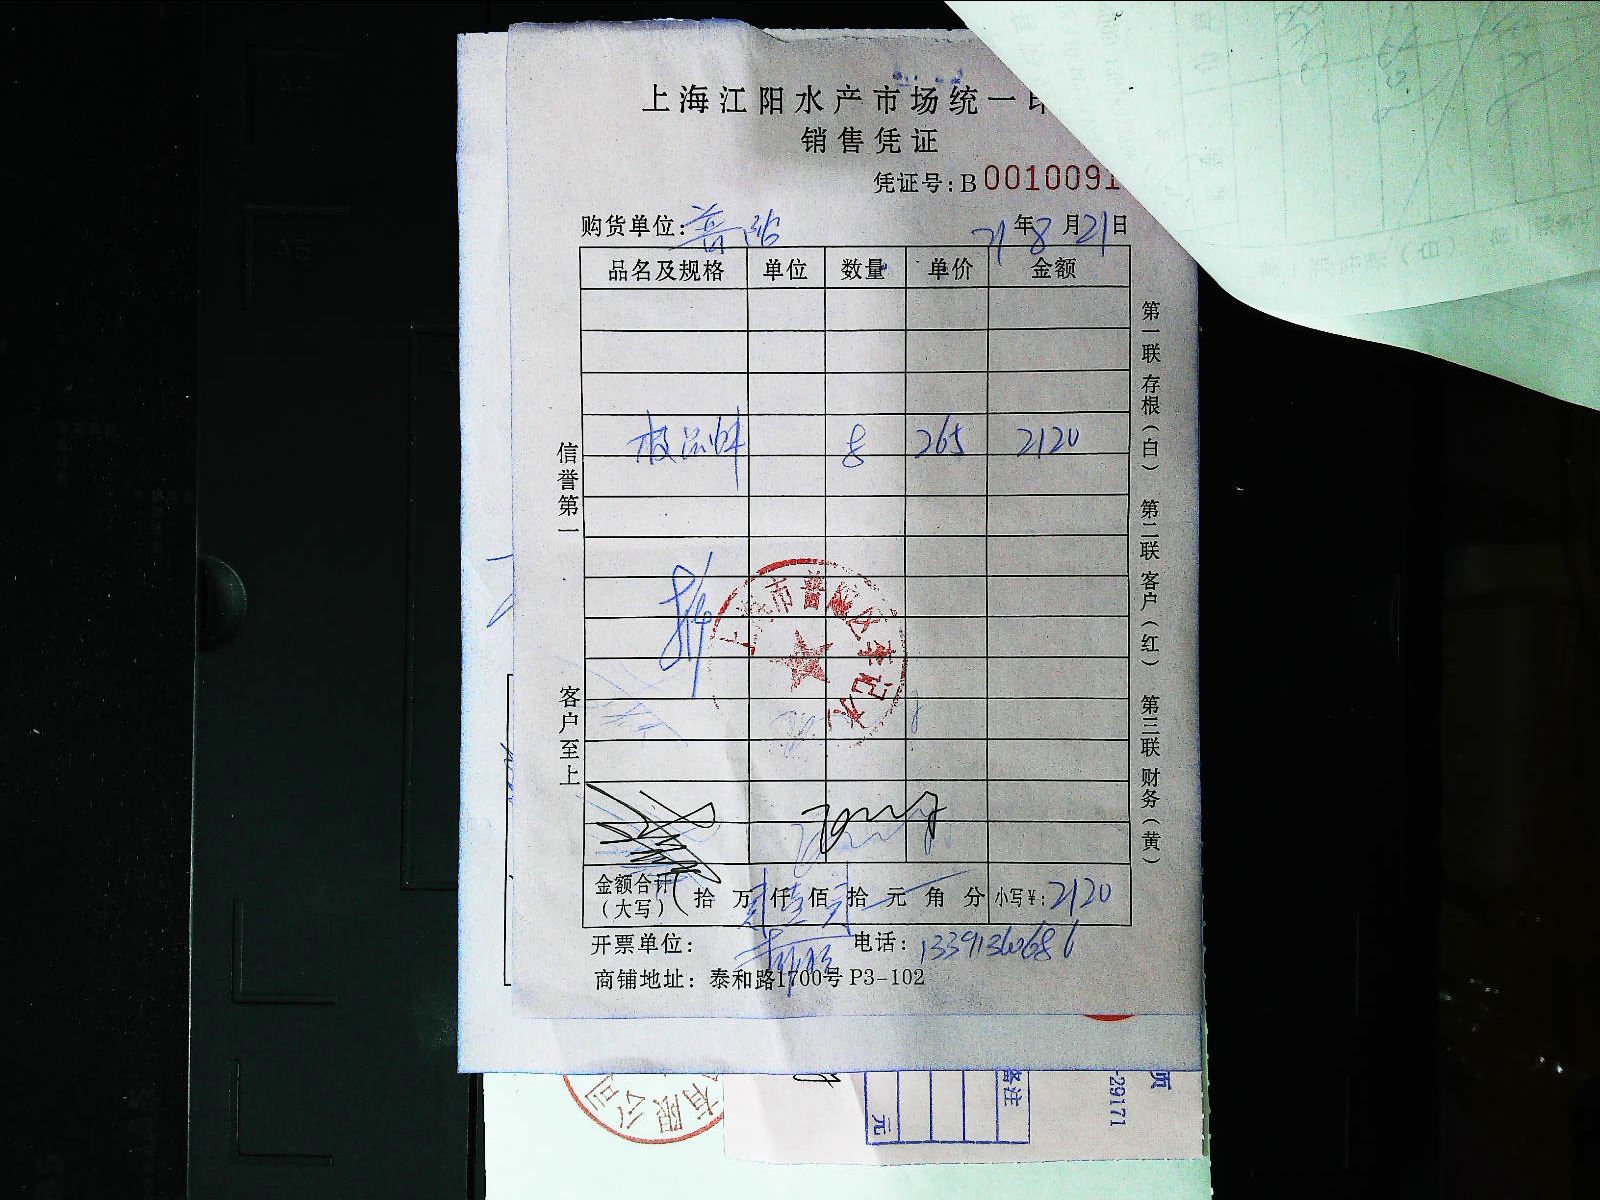 上海江阳水产市场统一印
销售凭证
凭证号:B 0010091
购货单位: 普陀 21年8月21日
品名及规格 单位 数量 单价 金额
8 265 2120
信誉第一
客户至上
第一联 存根（白） 第二联 客户（红） 第三联 财务（黄）
上海市普陀区李记水
金额合计（大写） 拾 万 贰仟 壹佰 贰拾 元 角 分 小写¥: 2120
开票单位: 电话:
商铺地址: 泰和路1700号 P3-102
有限公司
备注
元
页
-29171
A5